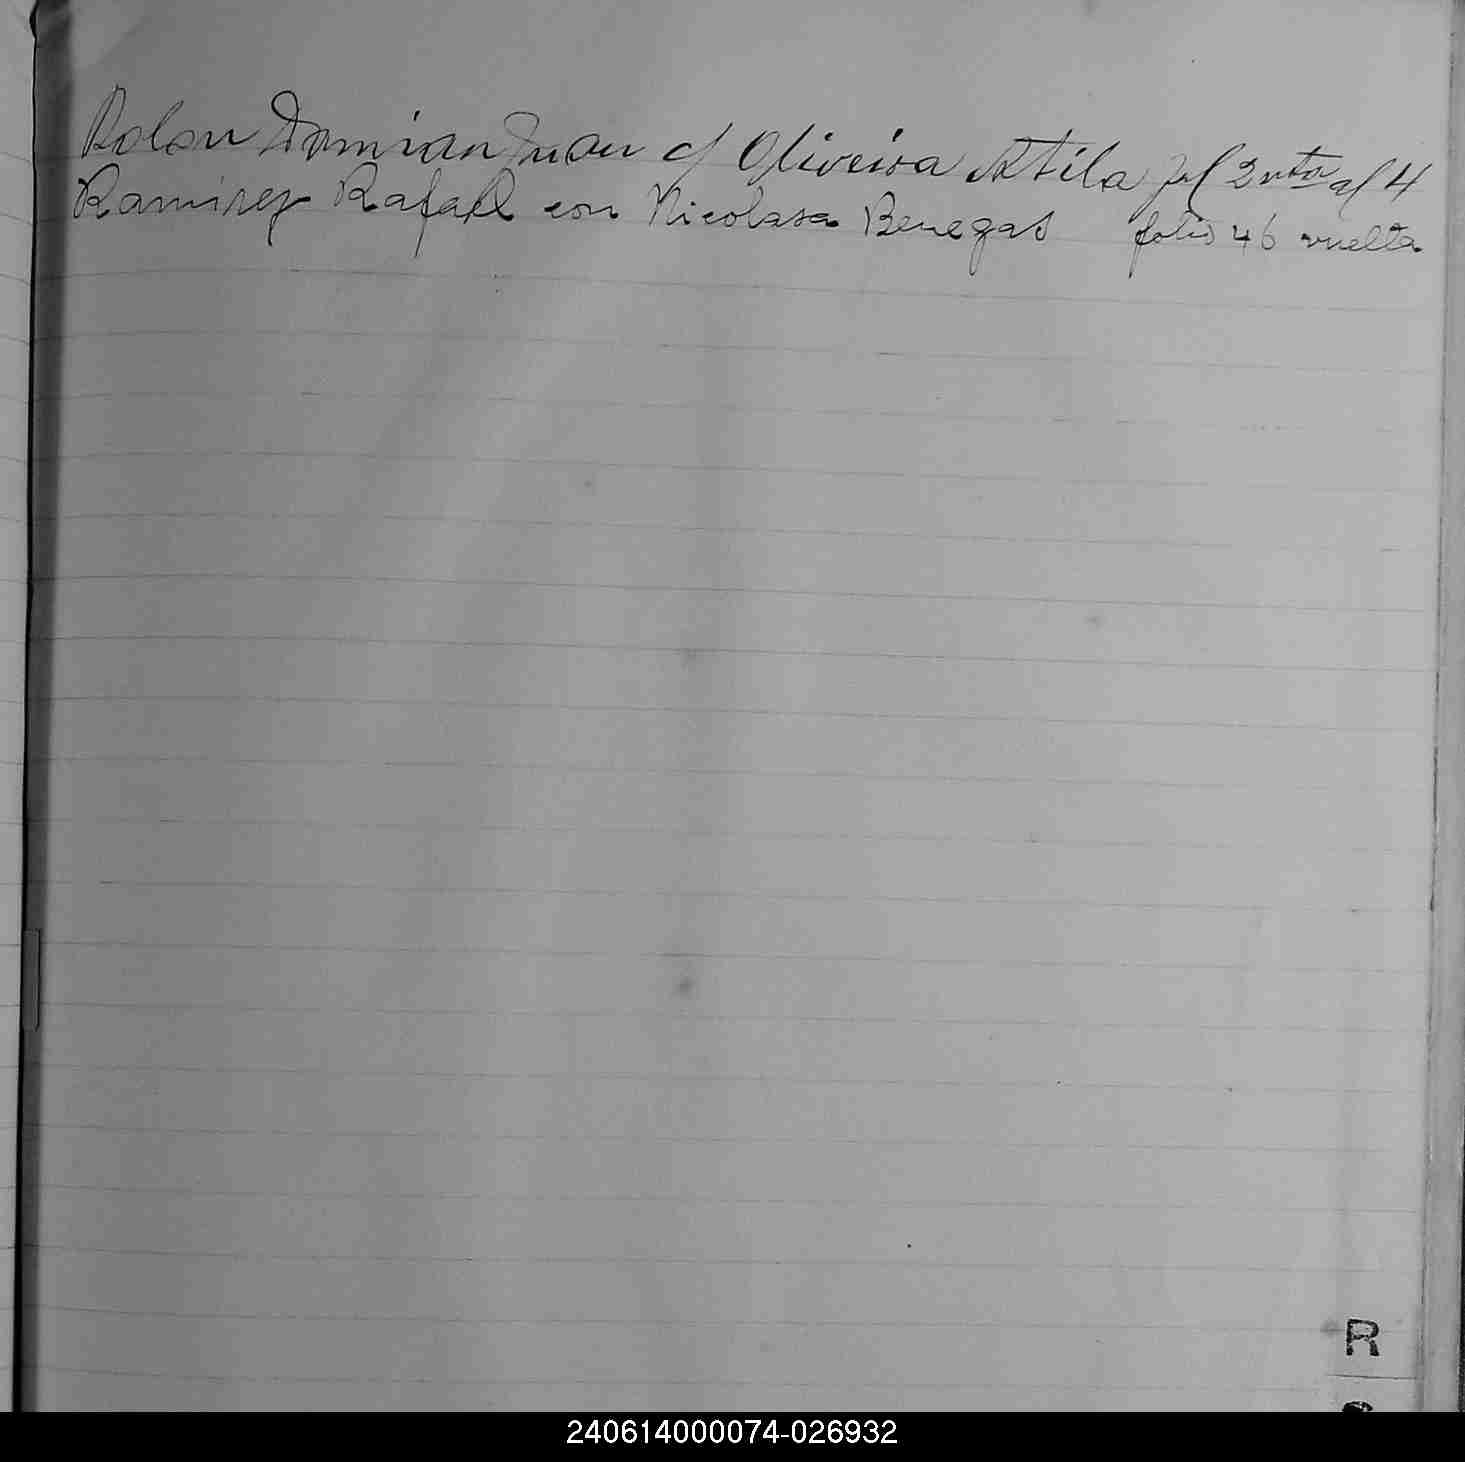 Rolon Damian Juan c/ Oliveira Atila fol 2 vta al 4
Ramirez Rafael con Nicolasa Benegas folio 46 vuelta
R
240614000074-026932